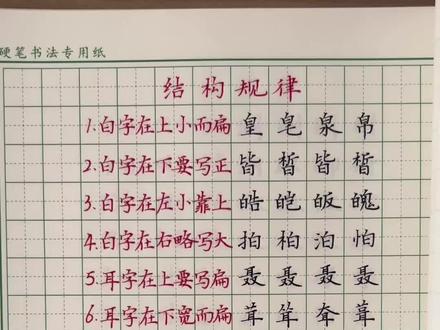 硬笔书法专用纸
结构规律
1.白字在上小而扁 皇皂泉帛
2.白字在下要写正 皆皙皆皙
3.白字在左小靠上 皓皑皈魄
4.白字在右略写大 拍柏泊怕
5.耳字在上要写扁 聂聂聂聂
6.耳字在下宽而扁 茸耸耷葺